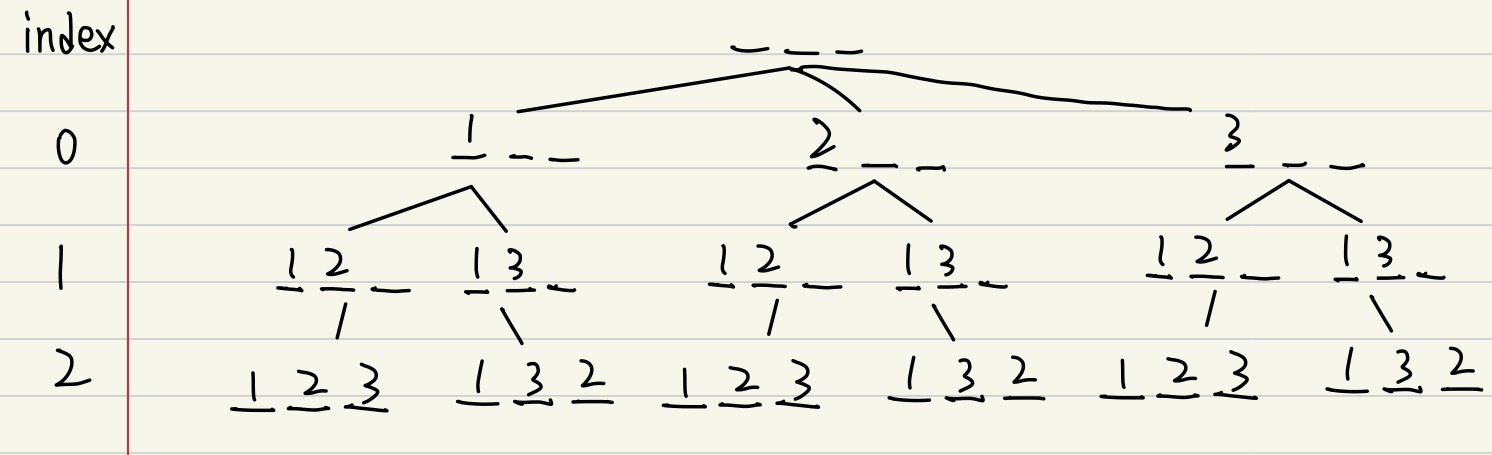 index
0 1 2 3
1 1 2 1 3 1 2 1 3 1 2 1 3
2 1 2 3 1 3 2 1 2 3 1 3 2 1 2 3 1 3 2